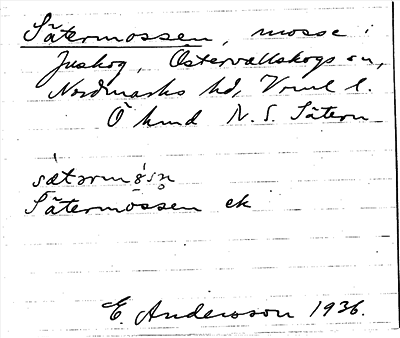 Sätermossen, mosse i
Juskog, Östervallskogs sn,
Nordmarks hd, Vrml l.
Ö hmd N. S. Sätern
sætərmɷ̀sn̥
Sätermossen ek
E. Anderson 1936.